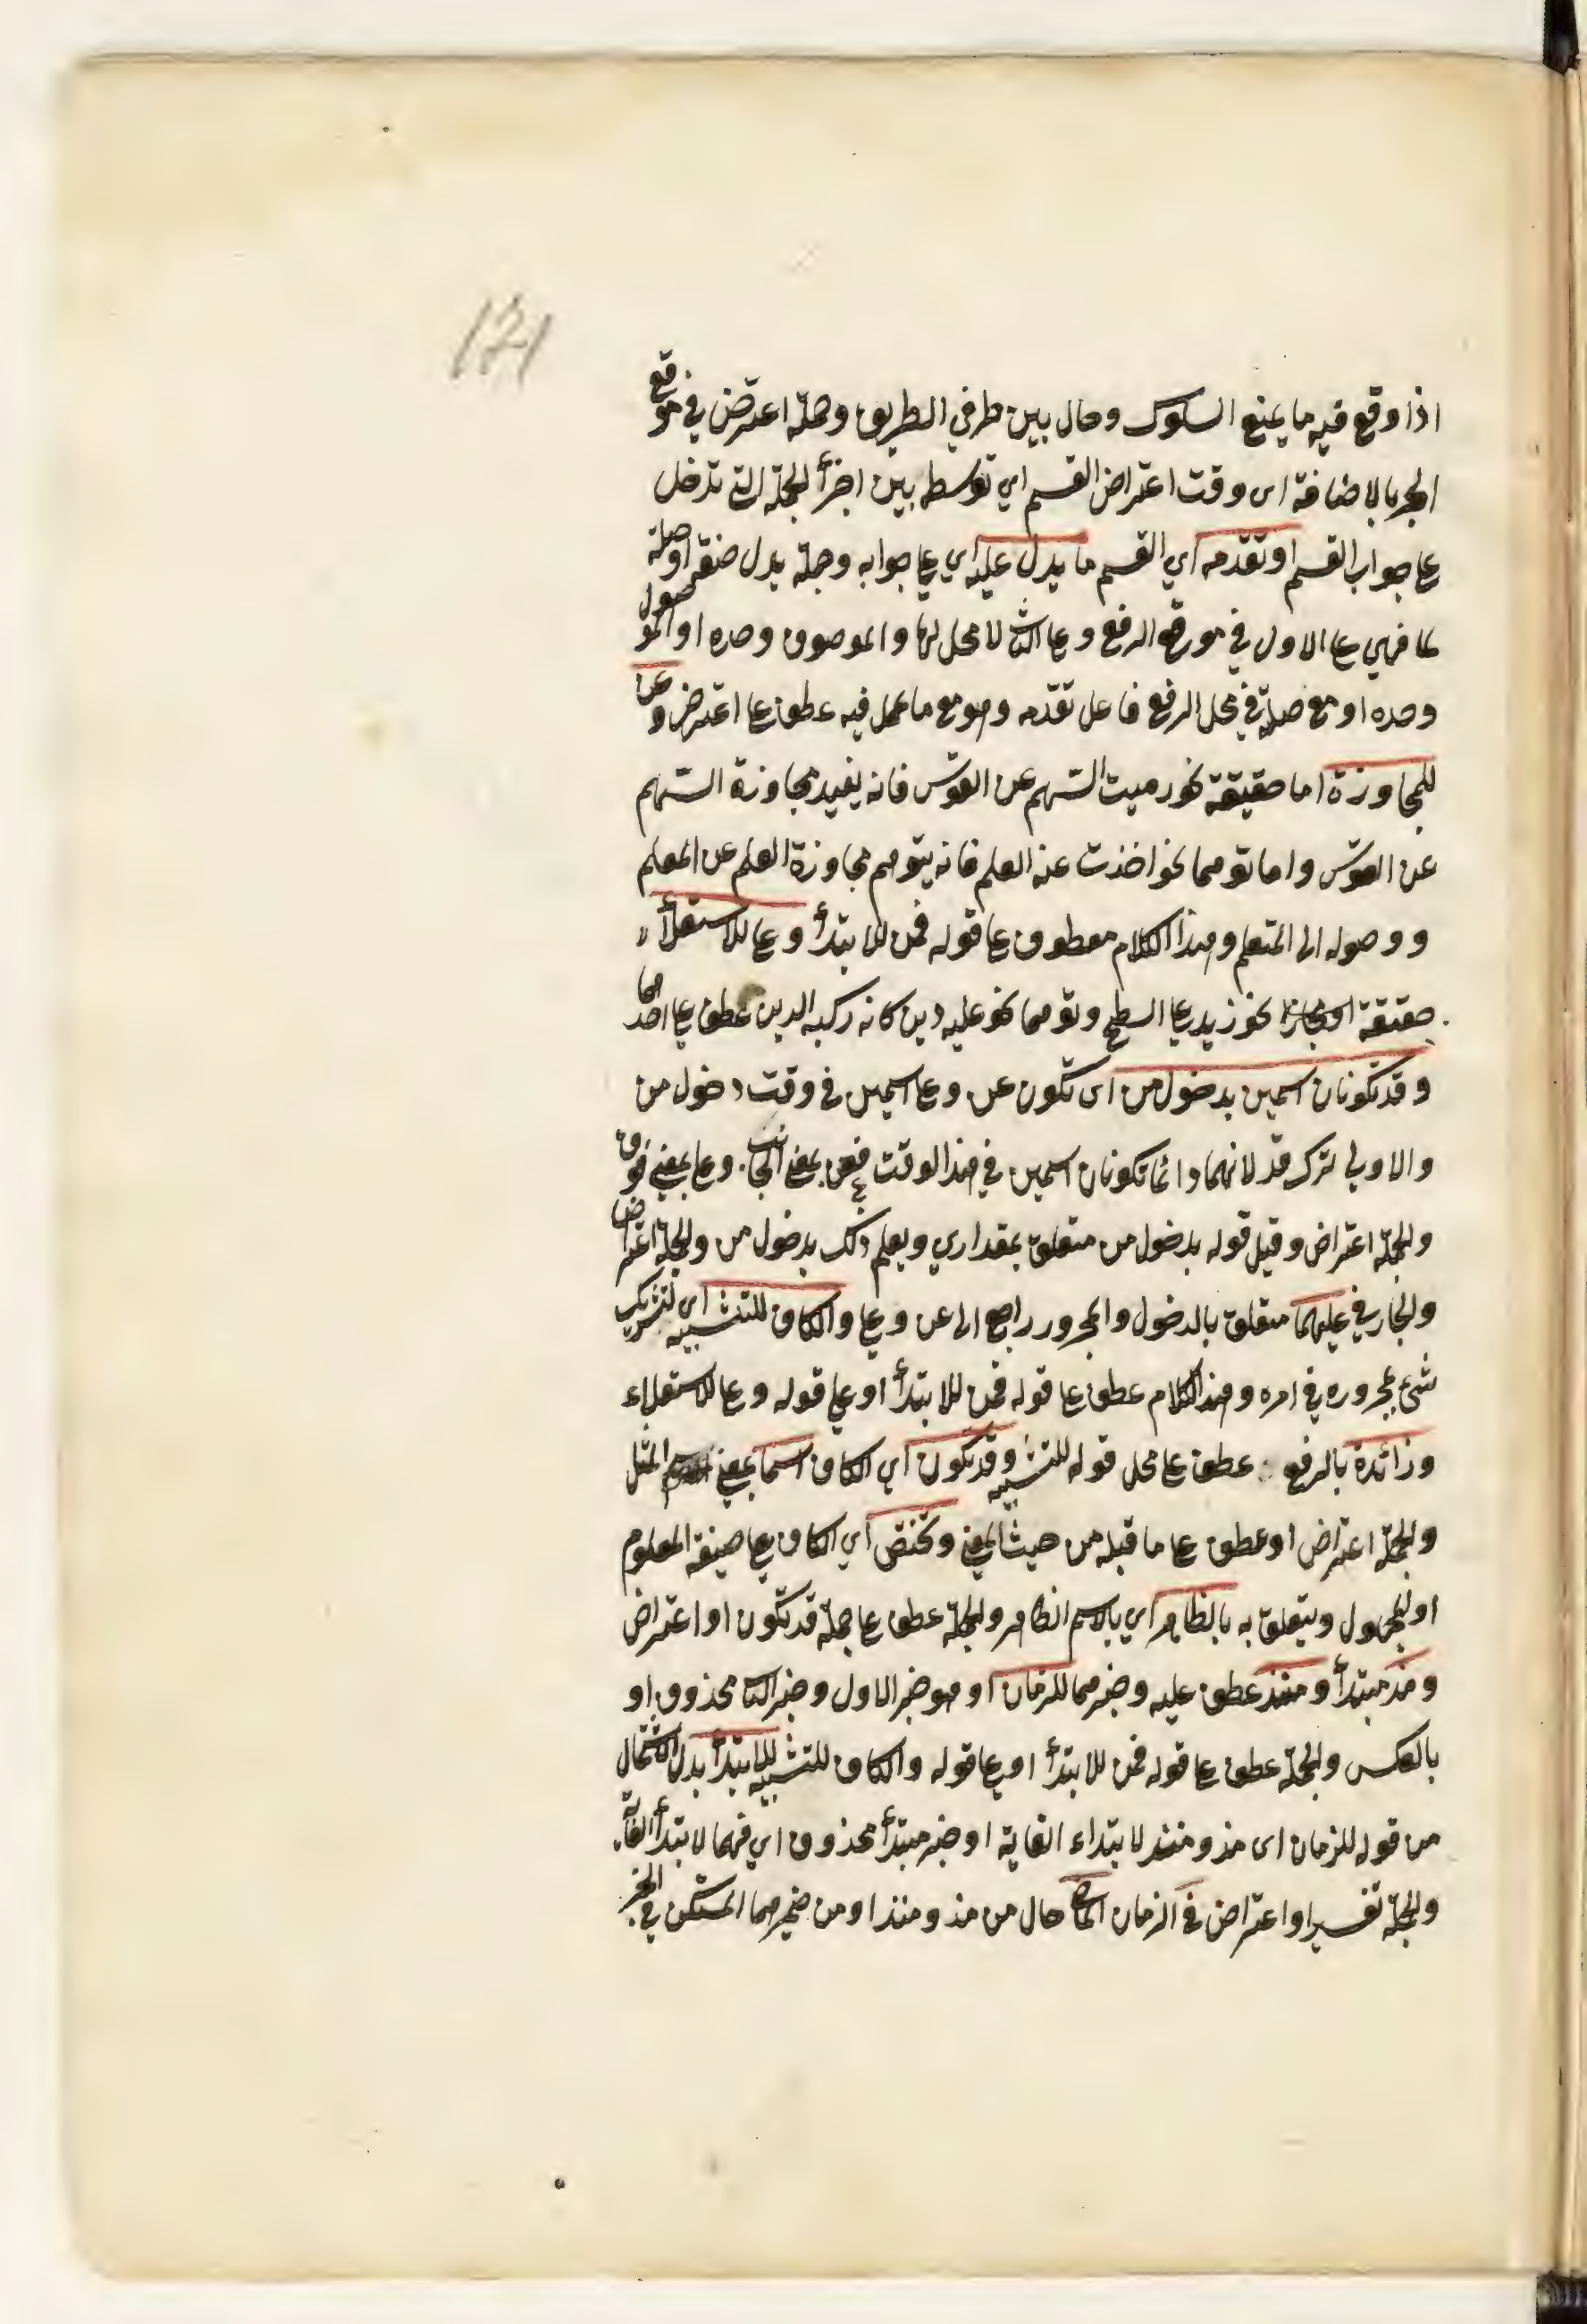 121
اذا وقع فيه ما يمنع السلوك وحال بين طرفي الطريق وجملة اعترض في موقع
الجر بالاضافة اى وقت اعتراض القسم اي توسطه بين اجزأ الجملة التي تدخل
على جواب القسم او تقدمه اي القسم ما يدل عليه اي على جوابه وجملة يدل صفة او صلة
لما فهي على الاول في موقع الرفع وعلى الثا لا محل لها والموصوف وحده او الموصول
وحده او مع صلته في محل الرفع فاعل تقدمه وهو مع ما عمل فيه عطف على اعترض وعن
للمجاوزة اما حقيقة نحو رميت السهم عن القوس فانه يفيد مجاوزة السهم
عن القوس واما توهما نحو اخذت عنه العلم فانه يتوهم مجاوزة العلم عن المعلم
ووصوله الى المتعلم وهذا الكلام معطوف على قوله فمن للابتدأ وعلى للاستعلأ
حقيقة نحو زيد على السطح وتوهما نحو عليه دين كانه ركبه الدين عطف على احدهما
وقد تكونان اسمين بدخول من اى تكون عن وعلى اسمين في وقت دخول من
والاولى ترك قد لانهما دائما تكونان اسمين في هذا الوقت فعن بمعنى الجانب وعلى بمعنى فوق
والجملة اعتراض وقيل قوله بدخول من متعلق بمقدار اي ويعلم ذلك بدخول من والجملة اعتراض
والجار في عليهما متعلق بالدخول والمجرور راجع الى عن وعلى والكاف للتشبيه اى لتشريك
شئ بمجروره في امره وهذا الكلام عطف على قوله فمن للابتدأ او على قوله وعلى للاستعلاء
وزائدة بالرفع عطف على محل قوله للتشبيه وقد تكون اي الكاف اسما بمعنى المثل
والجملة اعتراض او عطف على ما قبله من حيث المعنى وتختص اي الكاف على صيغة المعلوم
او المجهول ويتعلق به بالظاهر اي بالاسم الظاهر والجملة عطف على جملة قد تكون او اعتراض
ومذ مبتدأ ومنذ عطف عليه وخبرهما للزمان او هو خبر الاول وخبر الثا محذوف او
بالعكس والجملة عطف على قوله فمن للابتدأ او على قوله والكاف للتشبيه للابتدأ بدل الاشتمال
من قوله للزمان اى مذ ومنذ لابتداء الغاية او خبر مبتدأ محذوف اي فهما لابتدأ الغاية
والجملة تفسير او اعتراض في الزمان الماضي حال من مذ ومنذ او من ضميرهما المستكن في الخبر